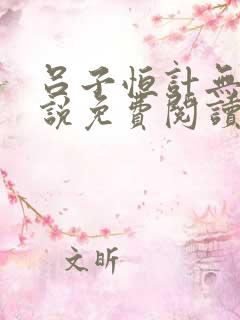 呂子恒計無
說免費閱讀
文昕